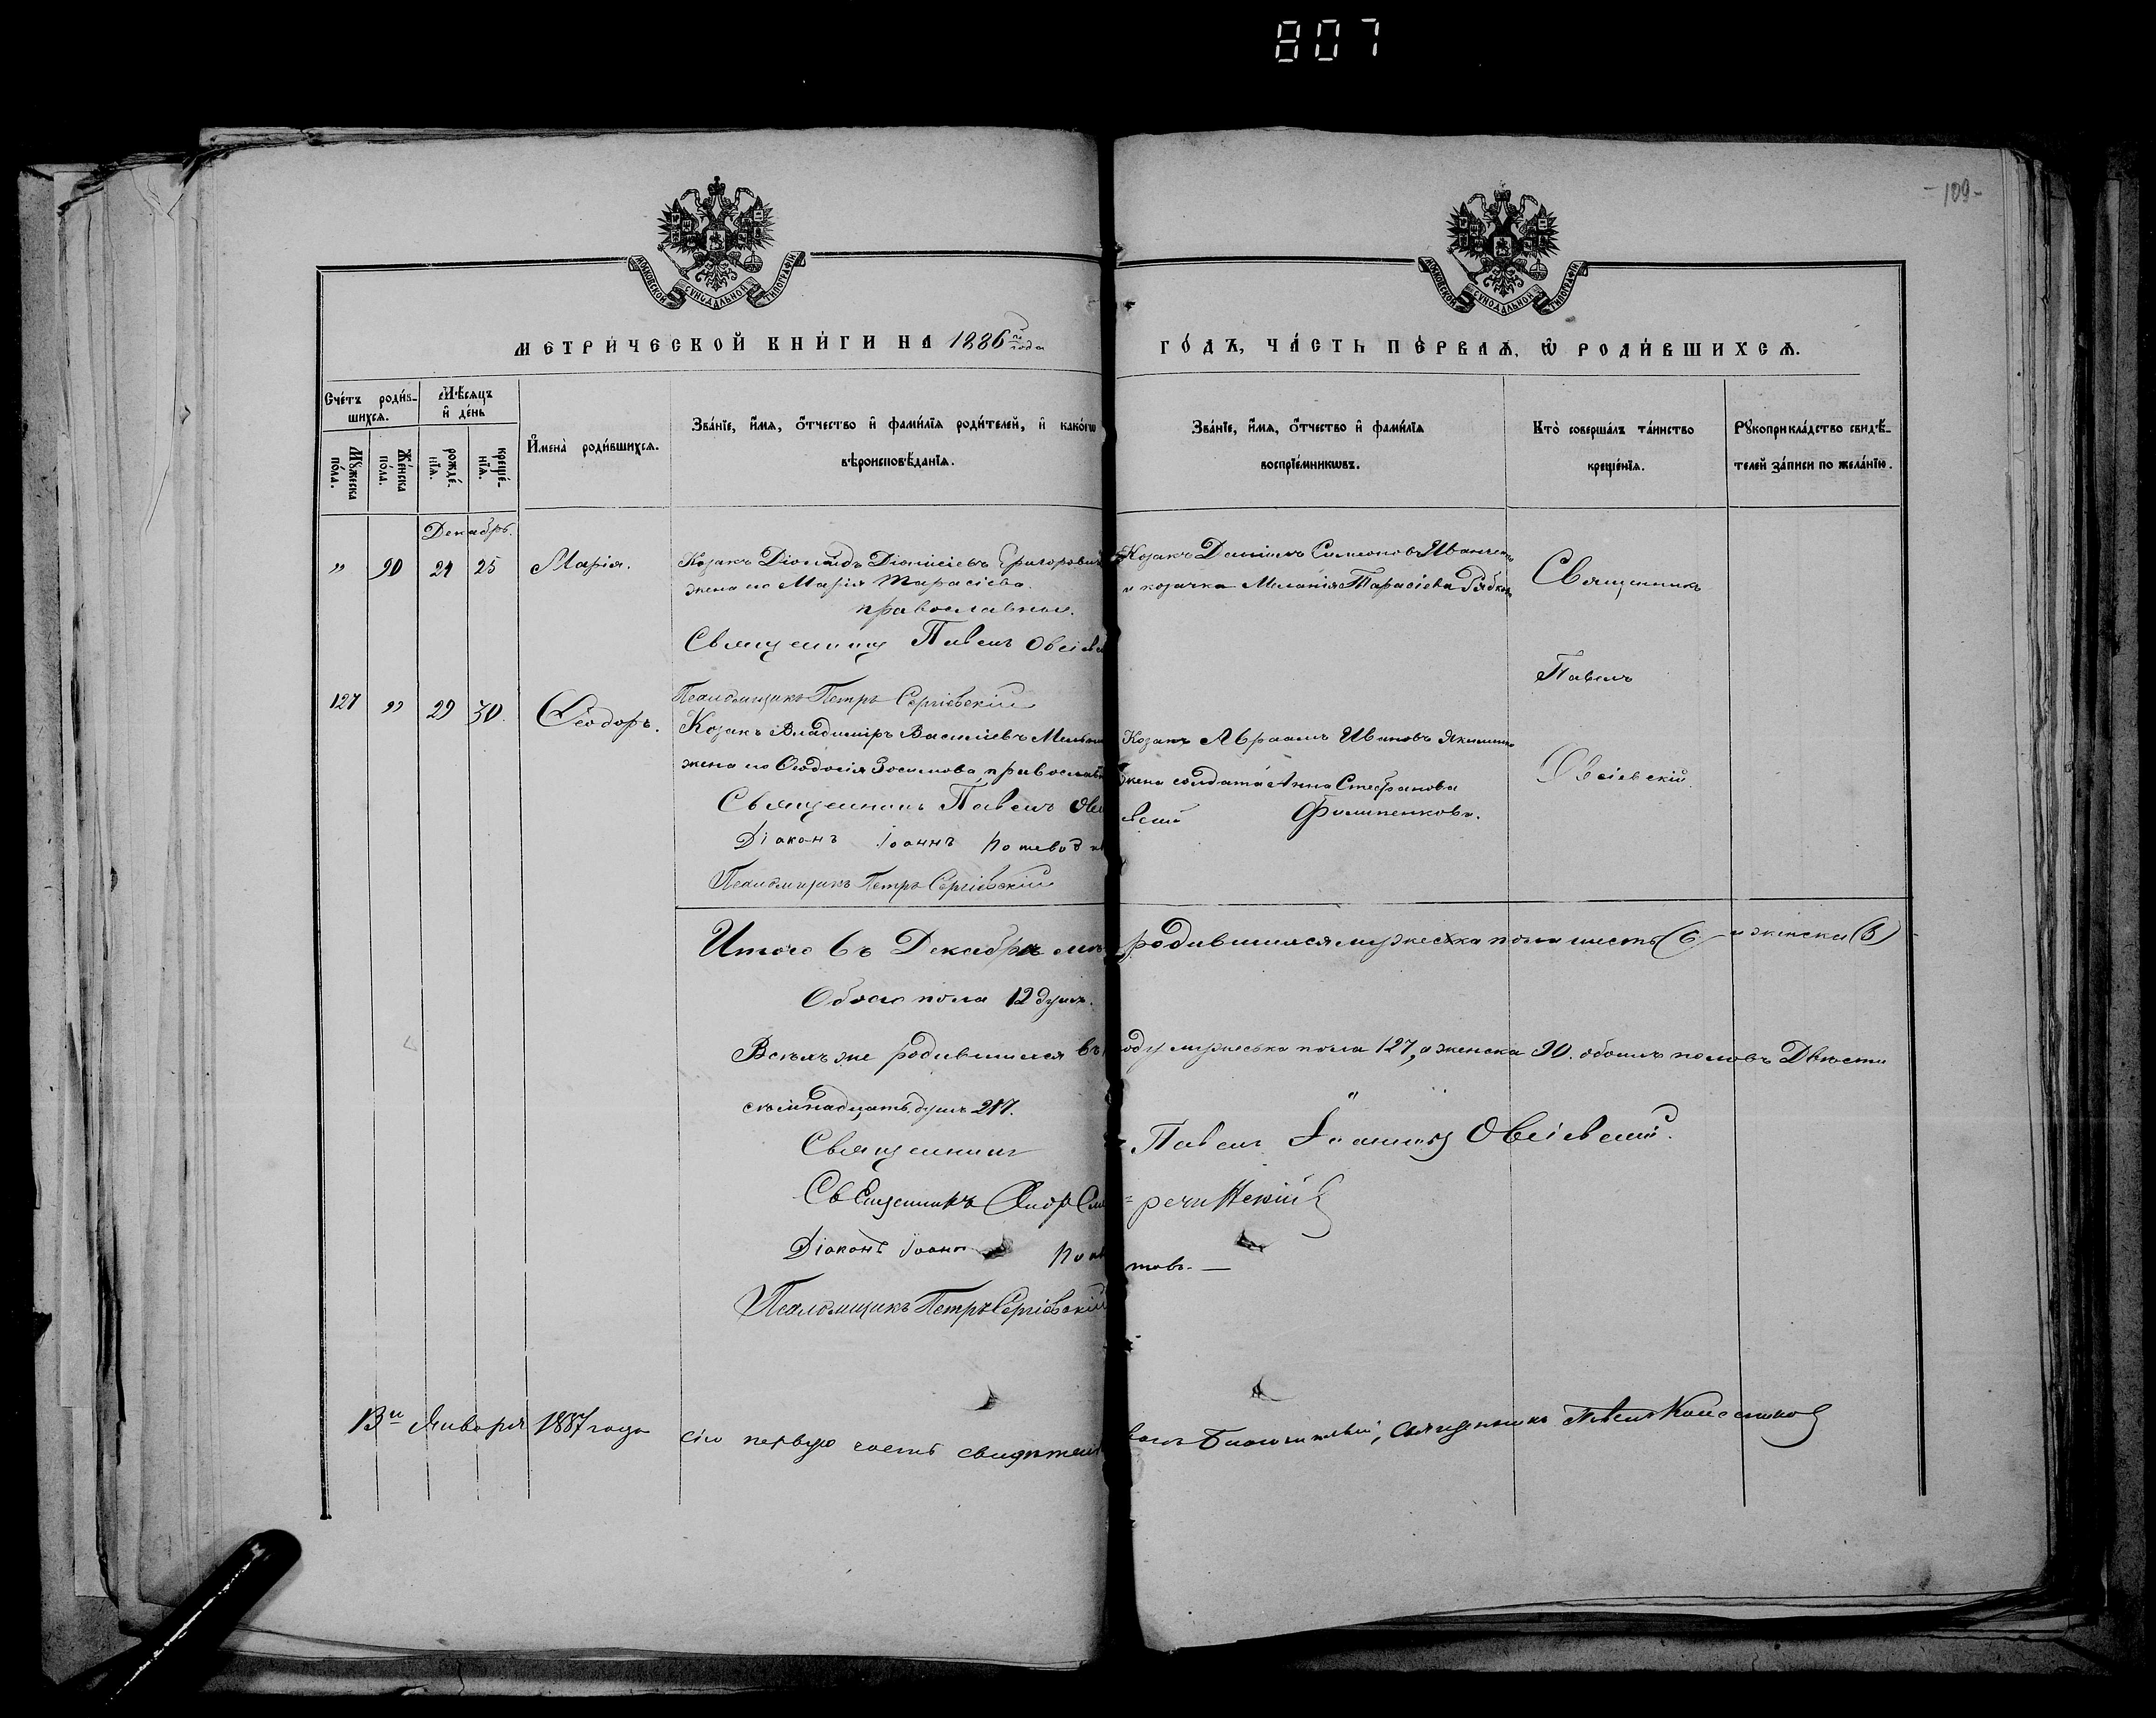 807
-109-
МОСКОВСКОЙ СѴНОДАЛЬНОЙ ТИПОГРАФІИ
МОСКОВСКОЙ СѴНОДАЛЬНОЙ ТИПОГРАФІИ
МЕТРИ́ЧЕСКОЙ КНИ́ГИ НА 1886 го года
ГО́ДЪ, ЧА́СТЬ ПЕ́РВАѦ, Ѽ РОДИ́ВШИХСѦ.
Сче́тъ роди́в-
шихсѧ.
Мѣ́сяцъ
и҆ де́нь
Мꙋ́жеска
по́ла.
Же́нска
по́ла.
рожде́-
нїѧ.
креще́-
нїѧ.
И҆мена̀ роди́вшихсѧ.
Зва́нїе, и҆́мѧ, ѻ҆́тчество и҆ фами́лїѧ роди́телей, и҆ како́гѡ
вѣроисповѣ́данїѧ.
Зва́нїе, и҆́мѧ, ѻ҆́тчество и҆ фами́лїѧ
воспрїе́мникѡвъ.
Кто̀ соверша́лъ та́инство
креще́нїѧ.
Рꙋкоприкла́дство свидѣ́-
телей за́писи по жела́нїю.
Декабрь.
" 90 24 25 Марія.
Козакъ Діонисіевъ Григорович
жена его Марія Тарасіева.
православные.
Священникъ Павелъ Овсіев
Псаломщикъ Петръ Сергіевскій
Козакъ Даніилъ Симеоновъ Иванченко
и козачка Меланія Тарасіева Рябков
Священникъ
Павелъ
Овсіевскій.
127 " 29 30. Ѳеодоръ.
Козакъ Владиміръ Василіевъ Мельни
жена его Ѳеодосія Зосимова, православн
Священникъ Павелъ Овсі
Діаконъ Іоаннъ
Псаломщикъ Петръ Сергіевскій
Козакъ Авраамъ Ивановъ Якименко
жена солдата Анна Стефанова
Филипенкова.
евскій
Итого въ Декабрѣ мѣс родившихся мужеска пола шесть (6) и женска (6)
Обоего пола 12 душъ.
Всѣхъ же родившихся въ году мужеска пола 127, а женска 90. обоихъ половъ Двѣсти
семнадцать душъ 217.
Священникъ Павелъ Іоанновъ Овсіевскій.
Священникъ Ѳеодоръ Сло=речинскій
Діаконъ Іоаннъ
Псаломщикъ Петръ Сергіевскій
13го Января 1887 года сію первую часть свидѣтельствовалъ Благочинный, Священникъ Павелъ Колесников